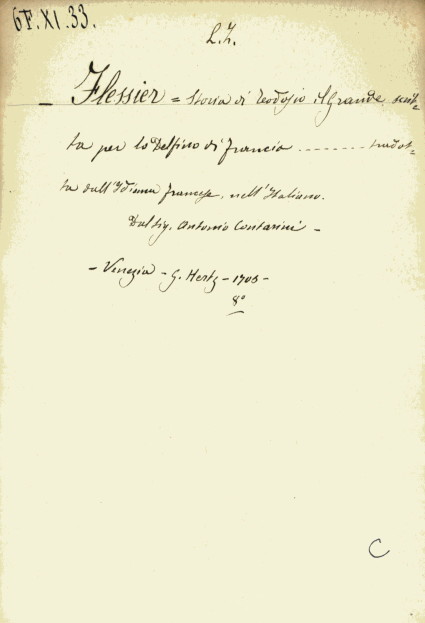 6F.XI.33.
L.Z.
— Flessier = Storia di Teodosio il Grande scrit-
ta per lo Delfino di Francia ........... tradot-
ta dall'Idioma francese, nell'Italiano.
Dal Sig. Antonio Contarini —
— Venezia — G. Hertz — 1703 —
8°
C